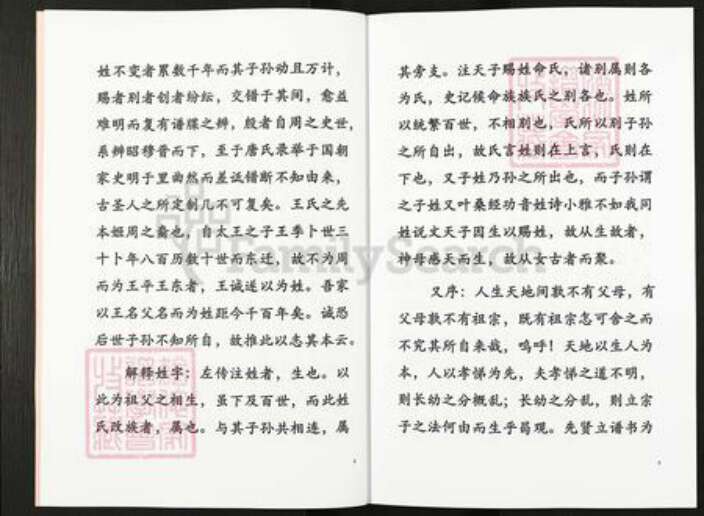 姓不变者累数千年而其子孙动且万计，
赐者别者创者纷纭，交错于其间，愈益
难明而复有谱牒之辨，殷者自周之史世，
系辨昭穆晋而下，至于唐氏录举于国朝
家史明于里曲然而差诋错断不知由来，
古圣人之所定制几不可复矣。王氏之先
本姬周之裔也，自太王之子王季卜世三
十卜年八百历数十世而东迁，故不为周
而为王平王东者，王诚遂以为姓。吾家
以王名父名而为姓距今千百年矣。诚恐
后世子孙不知所自，故推此以志其本云。
解释姓字：左传注姓者，生也。以
此为祖父之相生，虽下及百世，而此姓
氏改族者，属也。与其子孙共相连，属
其旁支。注天子赐姓命氏，诸别属则各
为氏，史记候命族族氏之别各也。姓所
以统繁百世，不相别也，氏所以别子孙
之所自出，故氏言姓则在上言，氏则在
下也，又子姓乃孙之所出也，而子孙谓
之子姓又叶桑经功音姓诗小雅不如我同
姓说文天子因生以赐姓，故从生故者，
神母感天而生，故从女古者而聚。
又序：人生天地间孰不有父母，有
父母孰不有祖宗，既有祖宗怎可舍之而
不究其所自来哉，呜呼！天地以生人为
本，人以孝悌为先，夫孝悌之道不明，
则长幼之分概乱；长幼之分乱，则立宗
子之法何由而生乎曷观。先贤立谱书为
FamilySearch